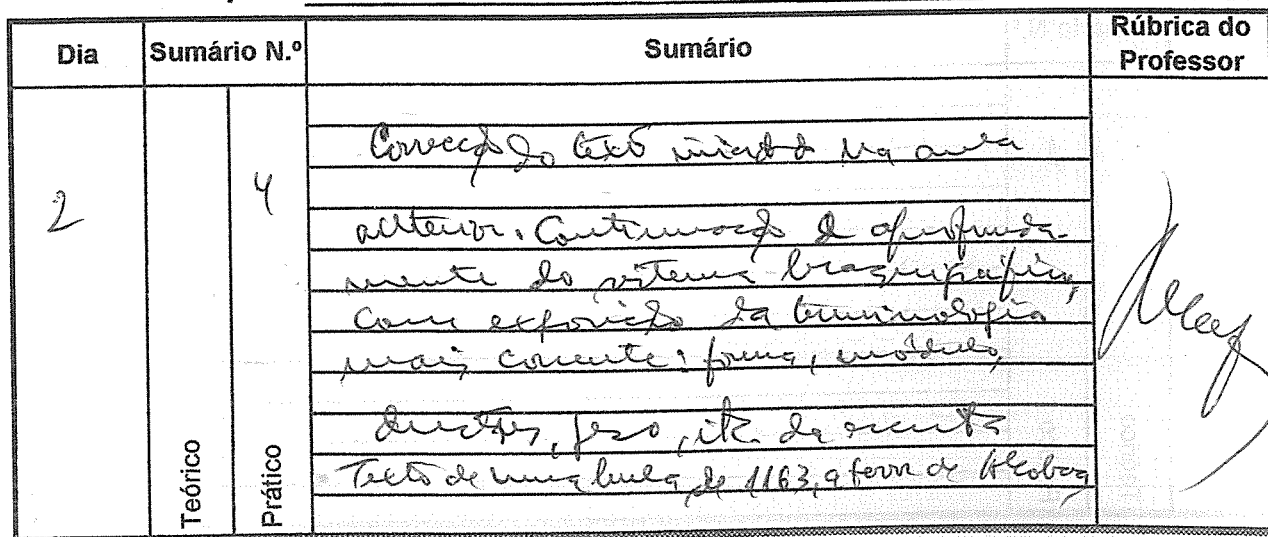 Dia Sumário N.º Sumário Rúbrica do Professor
2
4
Teórico
Prático
Correcção do texto iniciado na aula
anterior. Continuação do aprofunda-
mento do sistema braquigráfico,
com exposição da terminologia
mais corrente: forma, módulo,
ductus, peso, etc. da escrita
Texto de uma bula, de 1163, a favor de Alcobaça